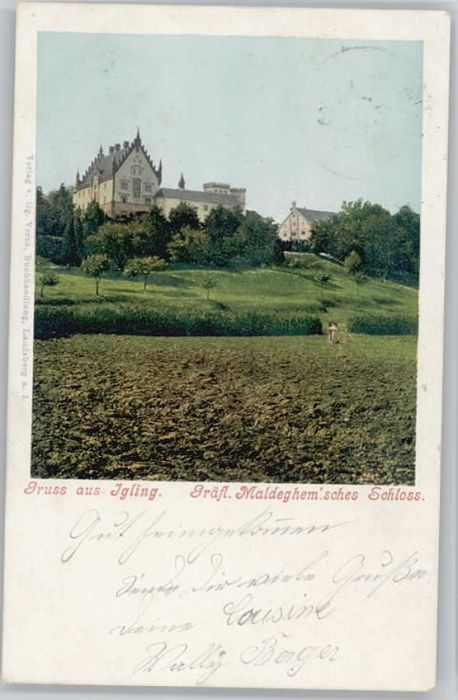 Verlag v. Gg. Verza, Buchhandlung, Landsberg a. L.
Gruss aus Igling. Gräfl. Maldeghem'sches Schloss.
Gut heimgekommen
Sende dir viele Grüße
deine Cousine
Wally Berger